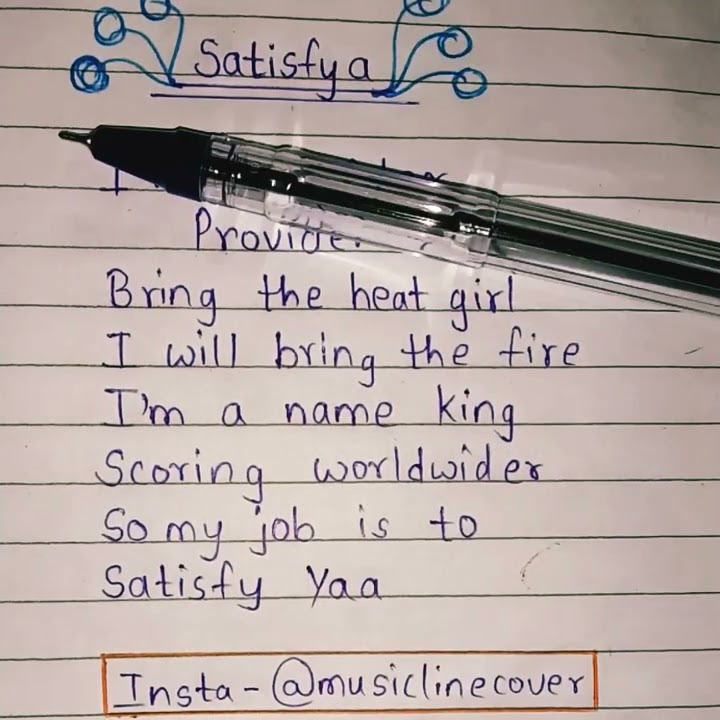 Satisfya
I
Provide
Bring the heat girl
I will bring the fire
I'm a name king
Scoring worldwider
So my job is to
Satisfy Yaa
Insta - @musiclinecover